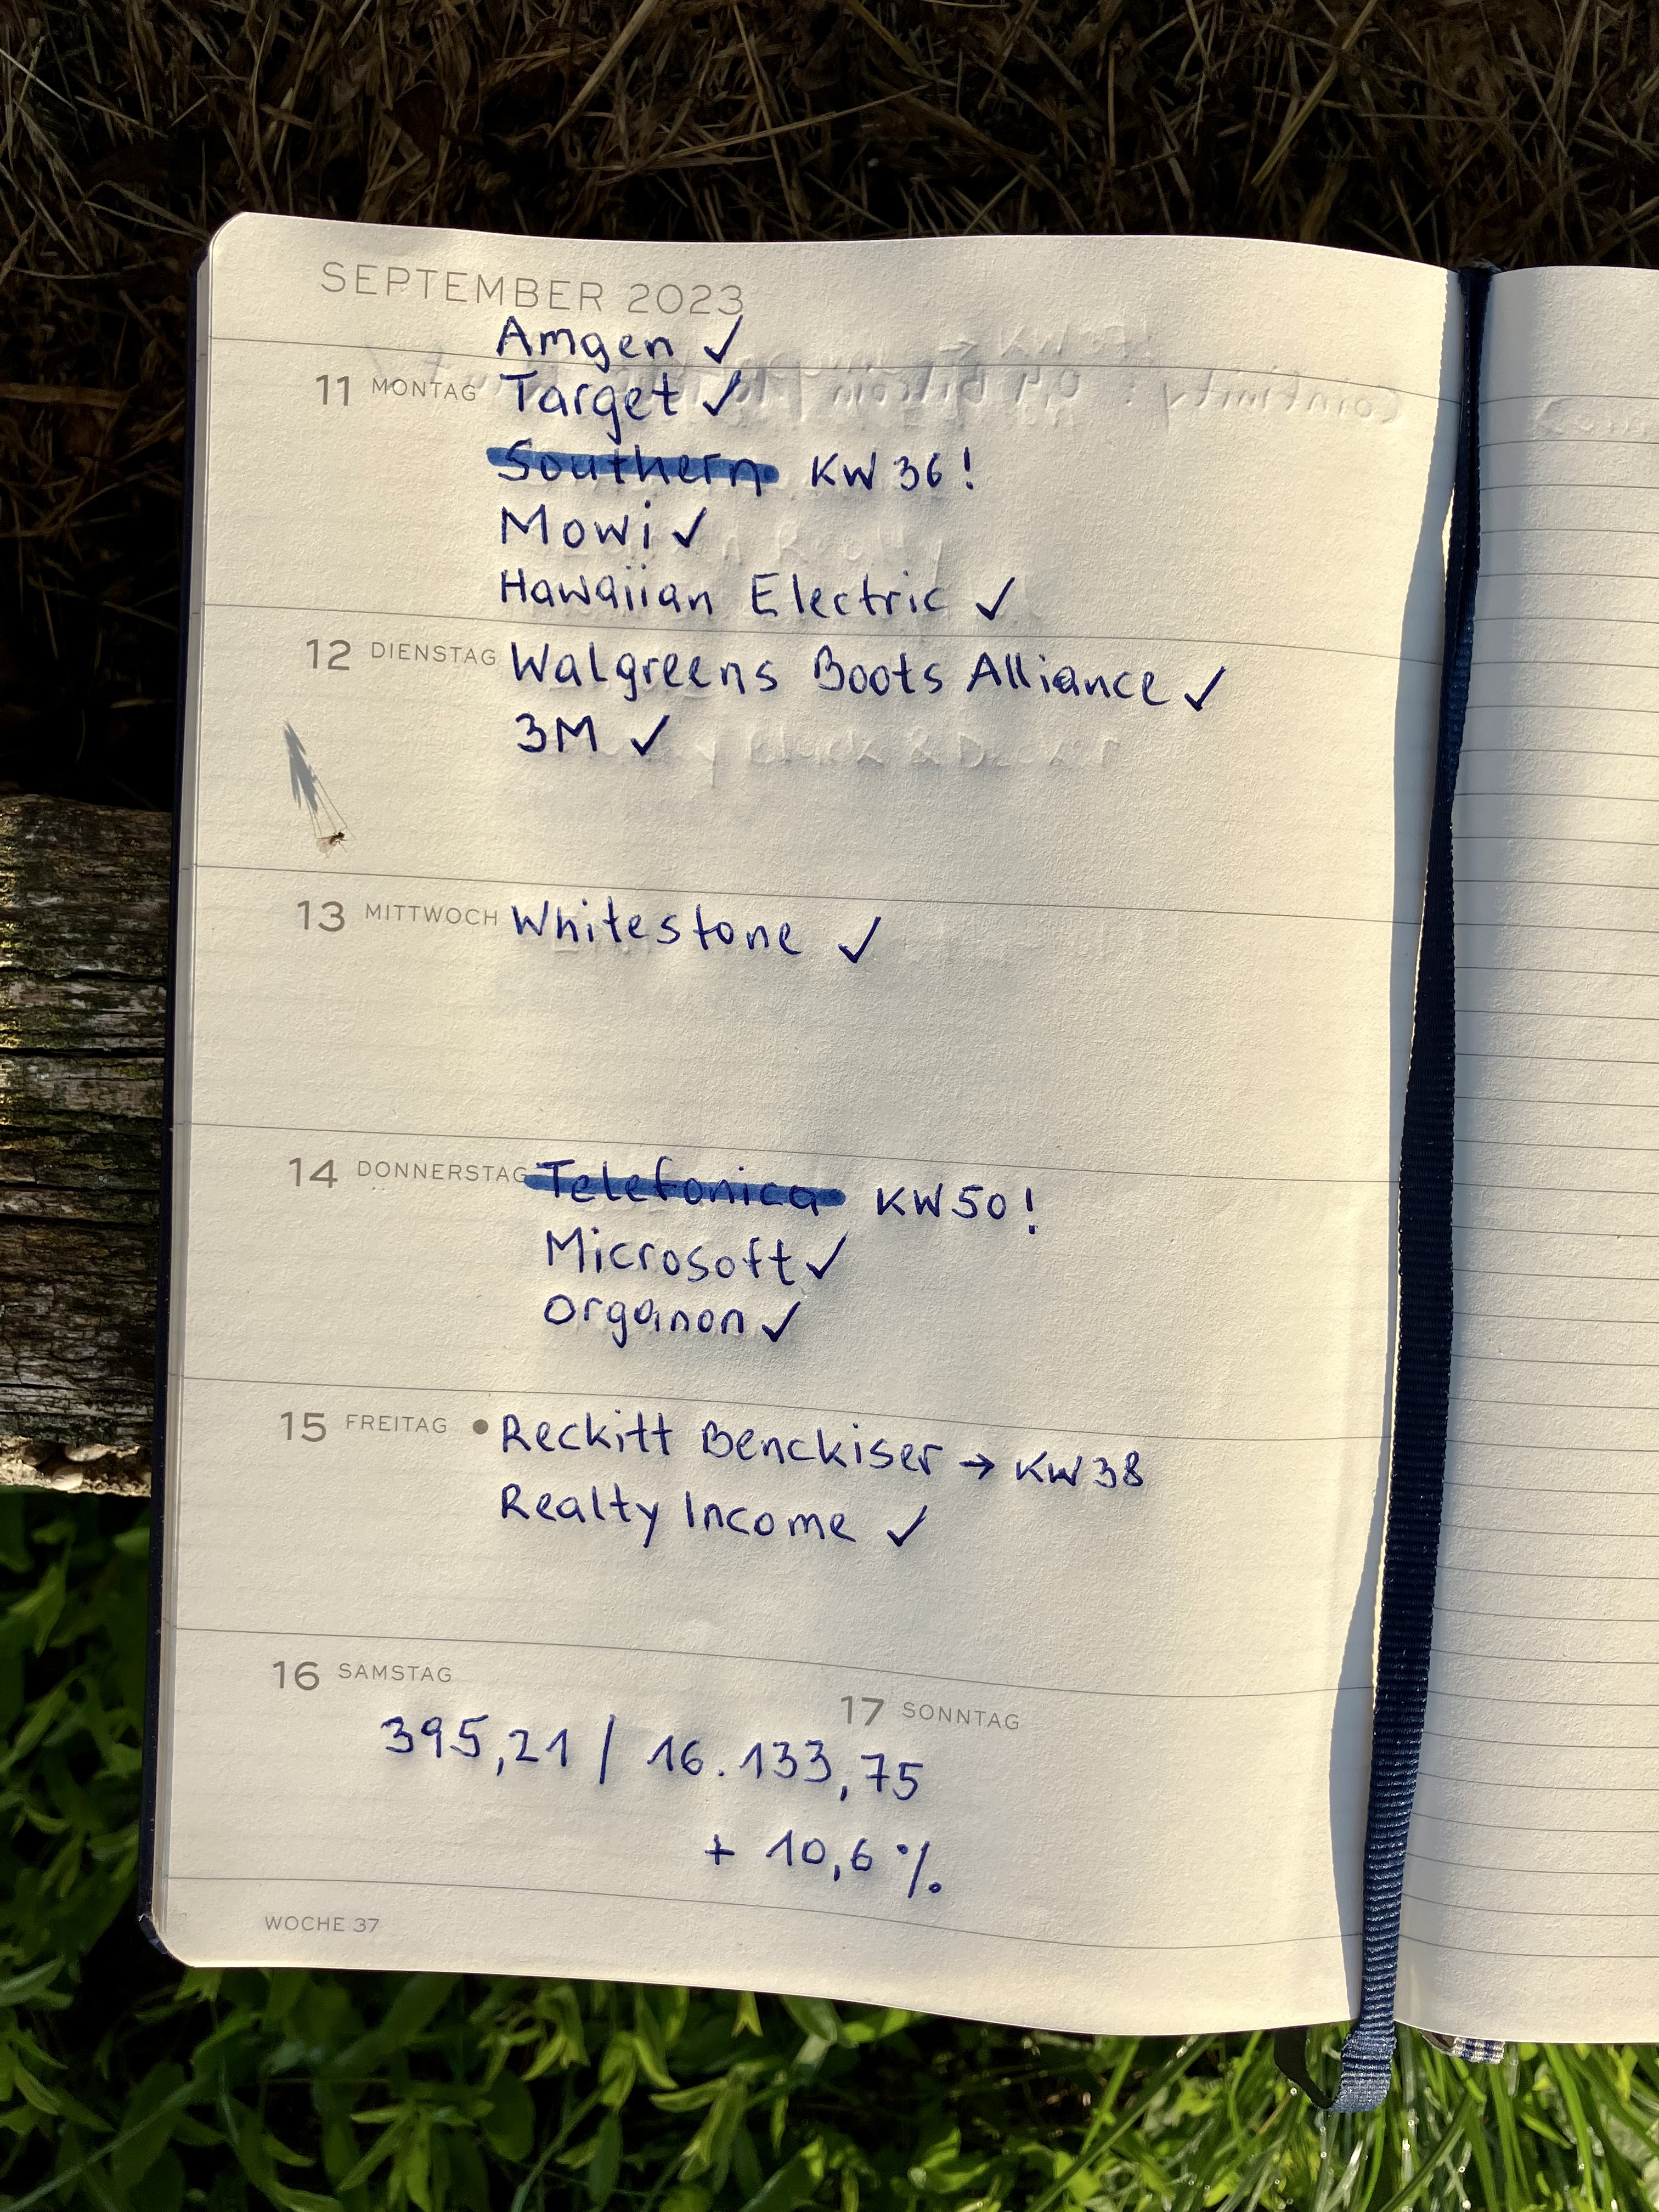 SEPTEMBER 2023
Amgen ✓
11 MONTAG Target ✓
Southern KW 36!
Mowi ✓
Hawaiian Electric ✓
12 DIENSTAG Walgreens Boots Alliance ✓
3M ✓
13 MITTWOCH Whitestone ✓
14 DONNERSTAG Telefonica KW 50!
Microsoft ✓
Organon ✓
15 FREITAG • Reckitt Benckiser → KW 38
Realty Income ✓
16 SAMSTAG
17 SONNTAG
395,21 / 16.133,75
+ 10,6 %
WOCHE 37